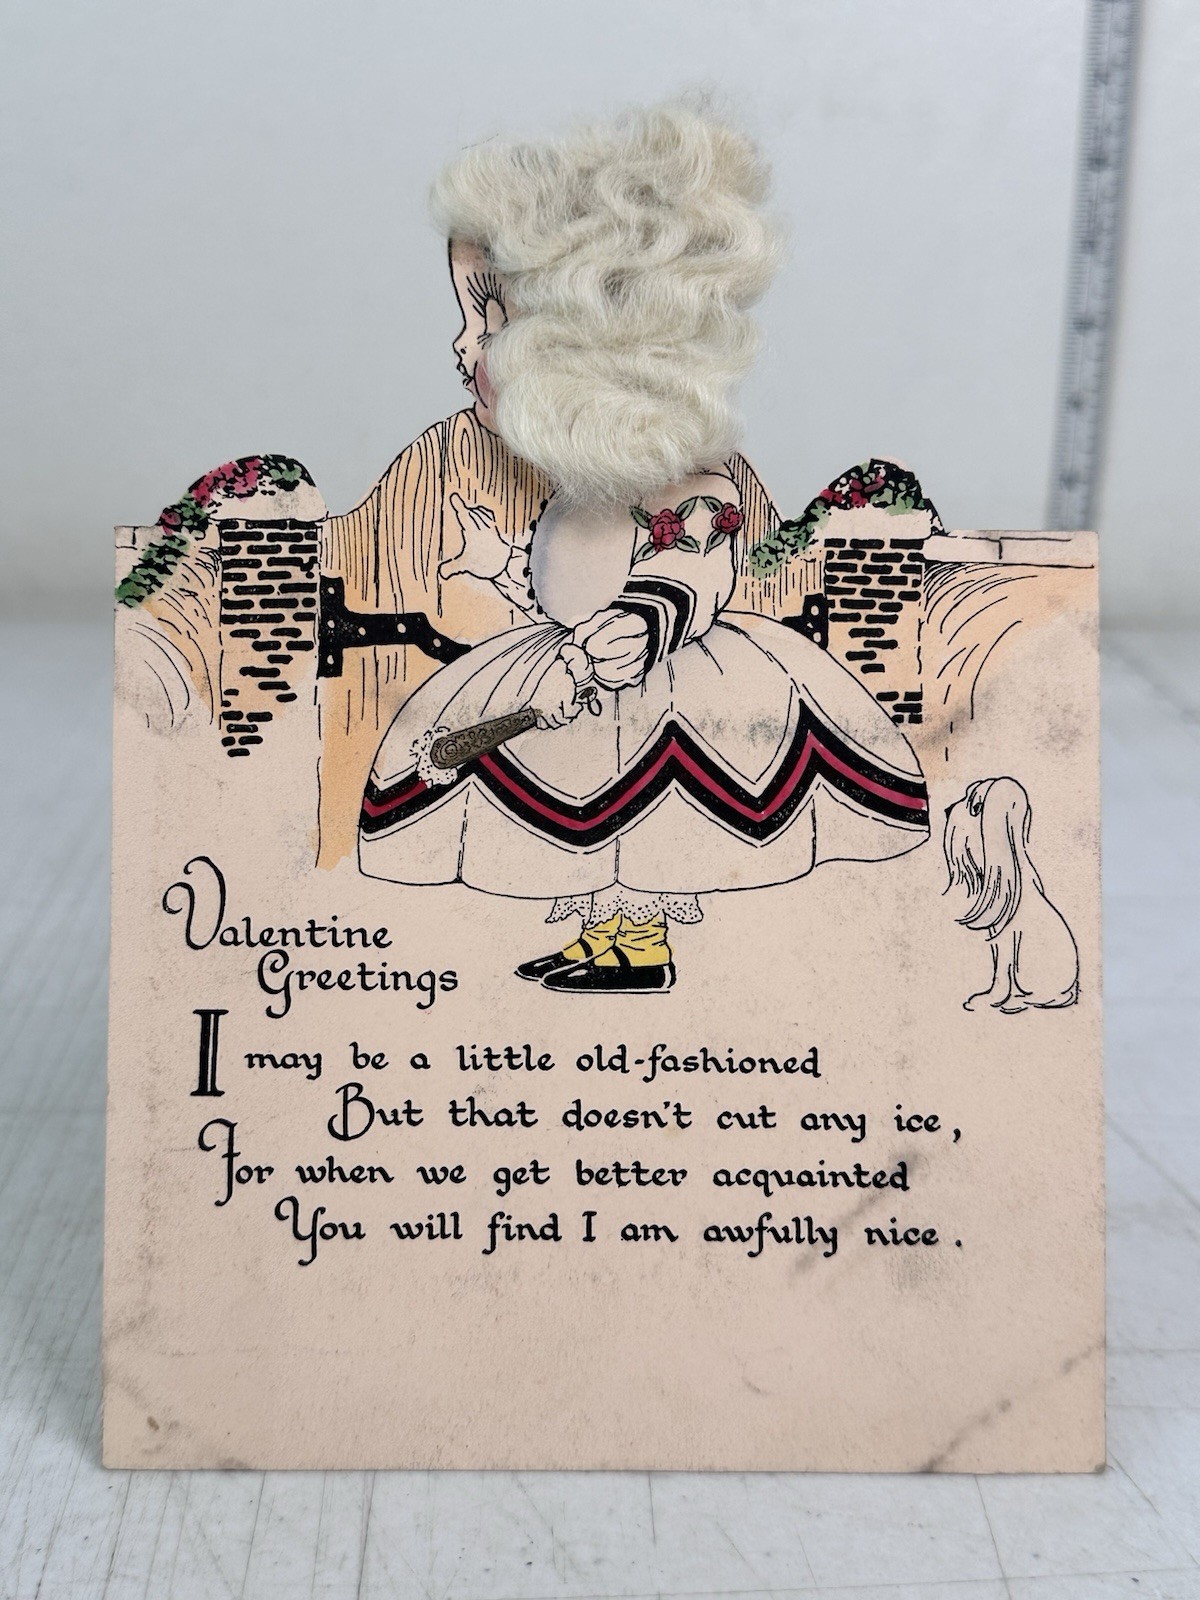 Valentine
Greetings
I may be a little old-fashioned
But that doesn't cut any ice,
For when we get better acquainted
You will find I am awfully nice.